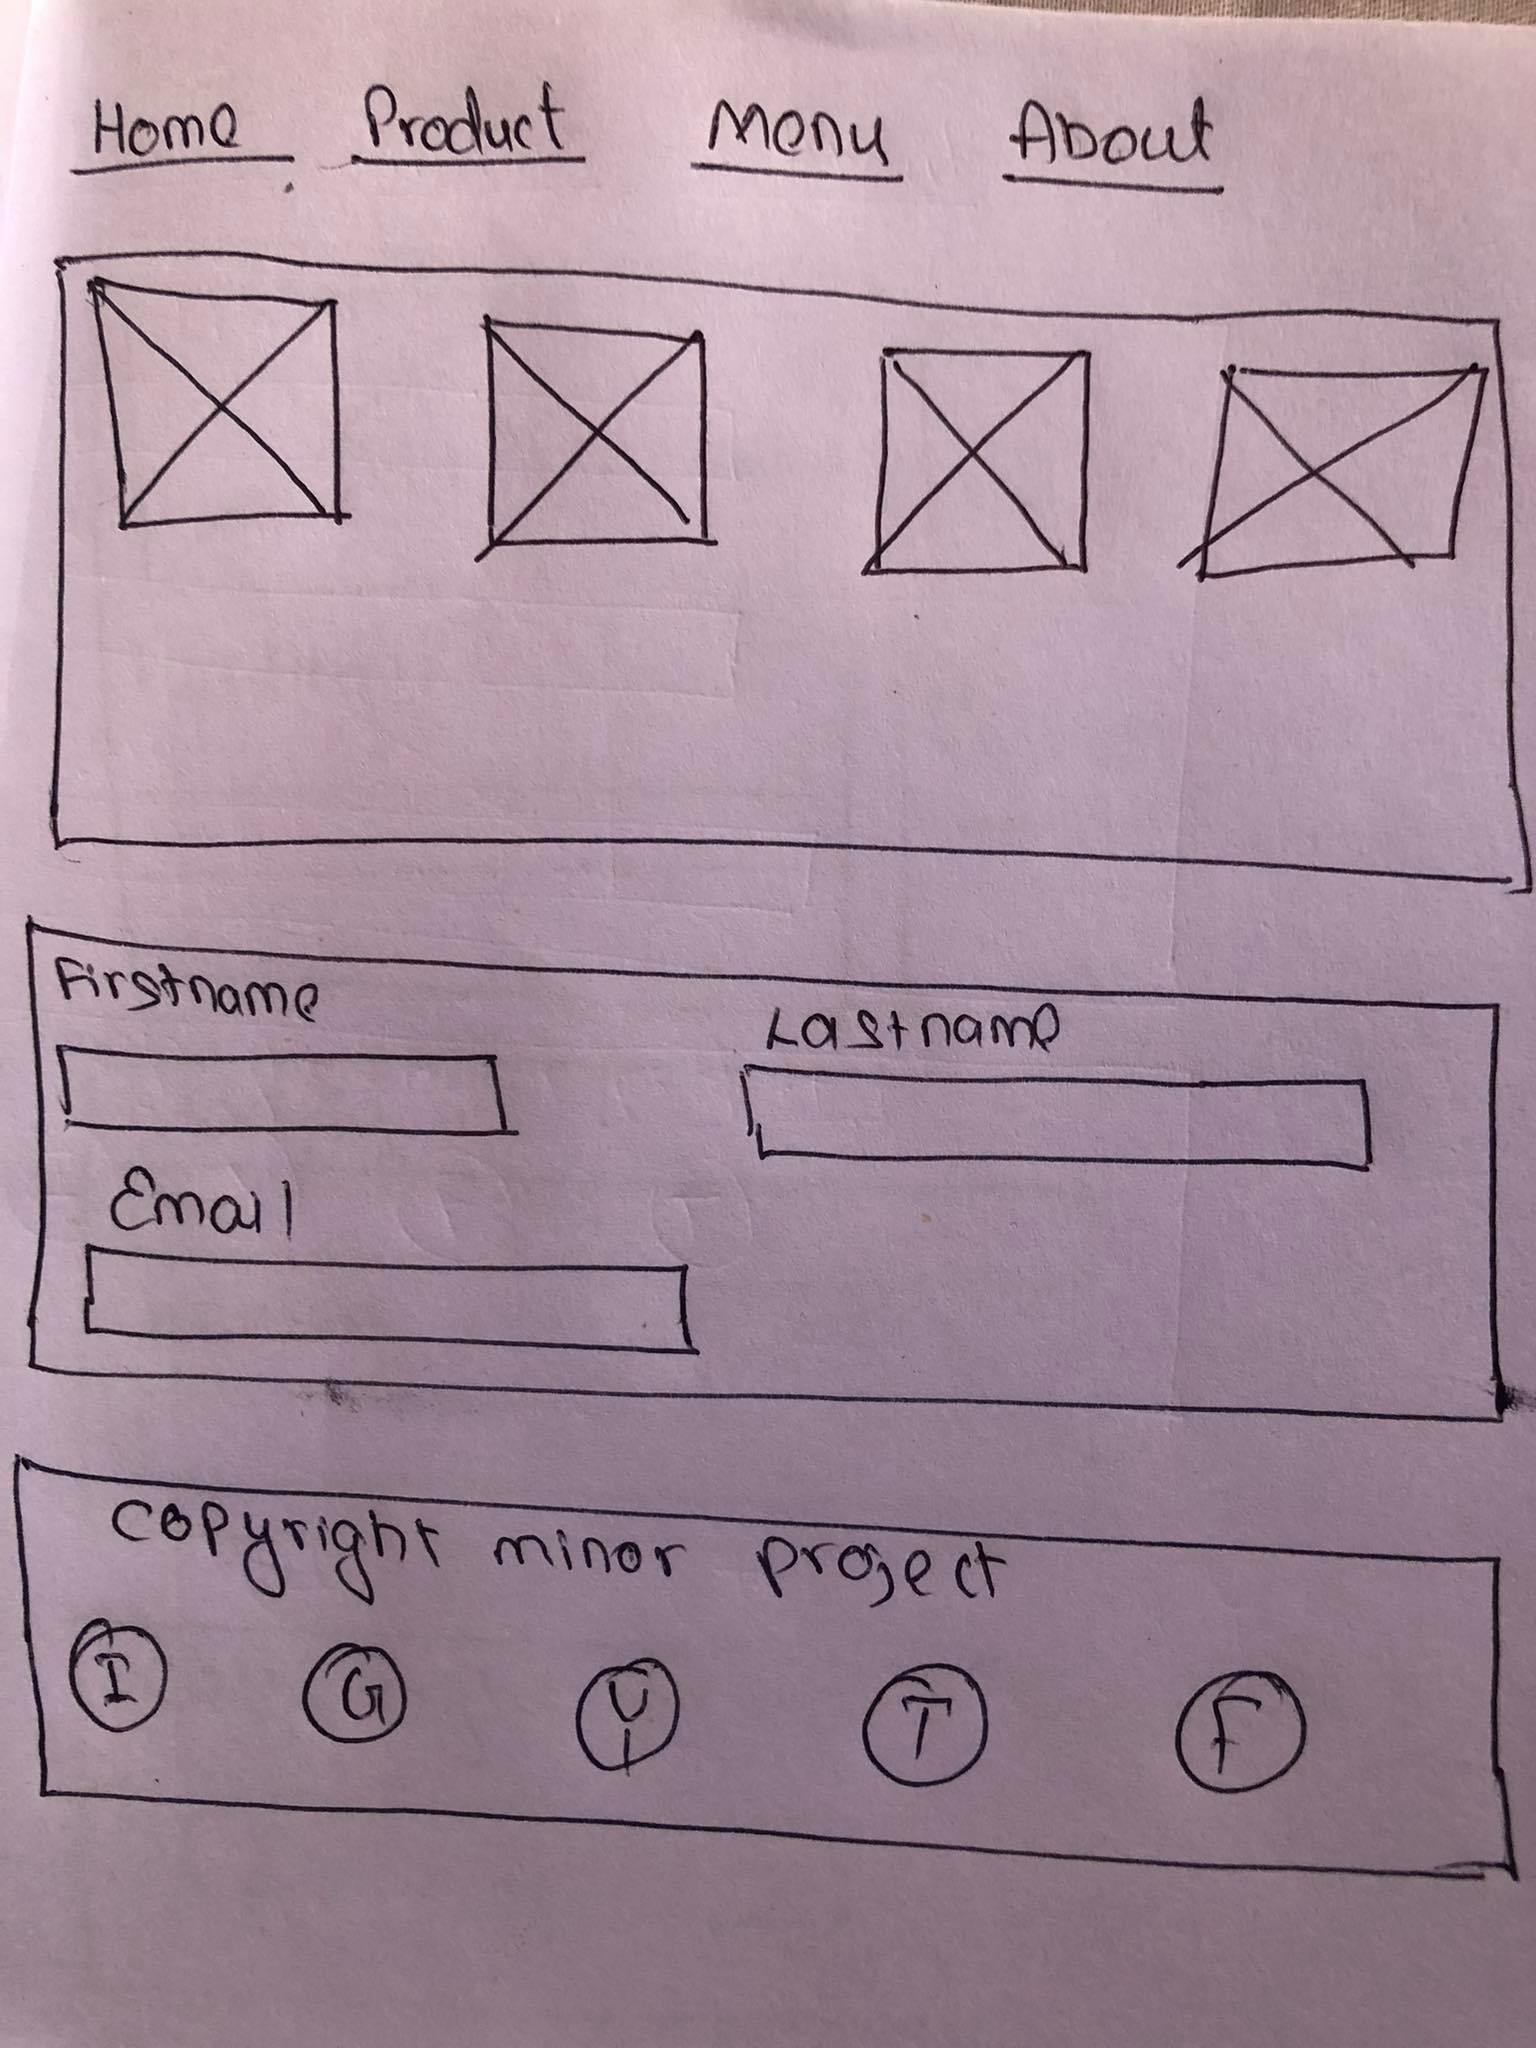 Home Product Menu About
Firstname
Lastname
Email
Copyright minor project
I G Y T F